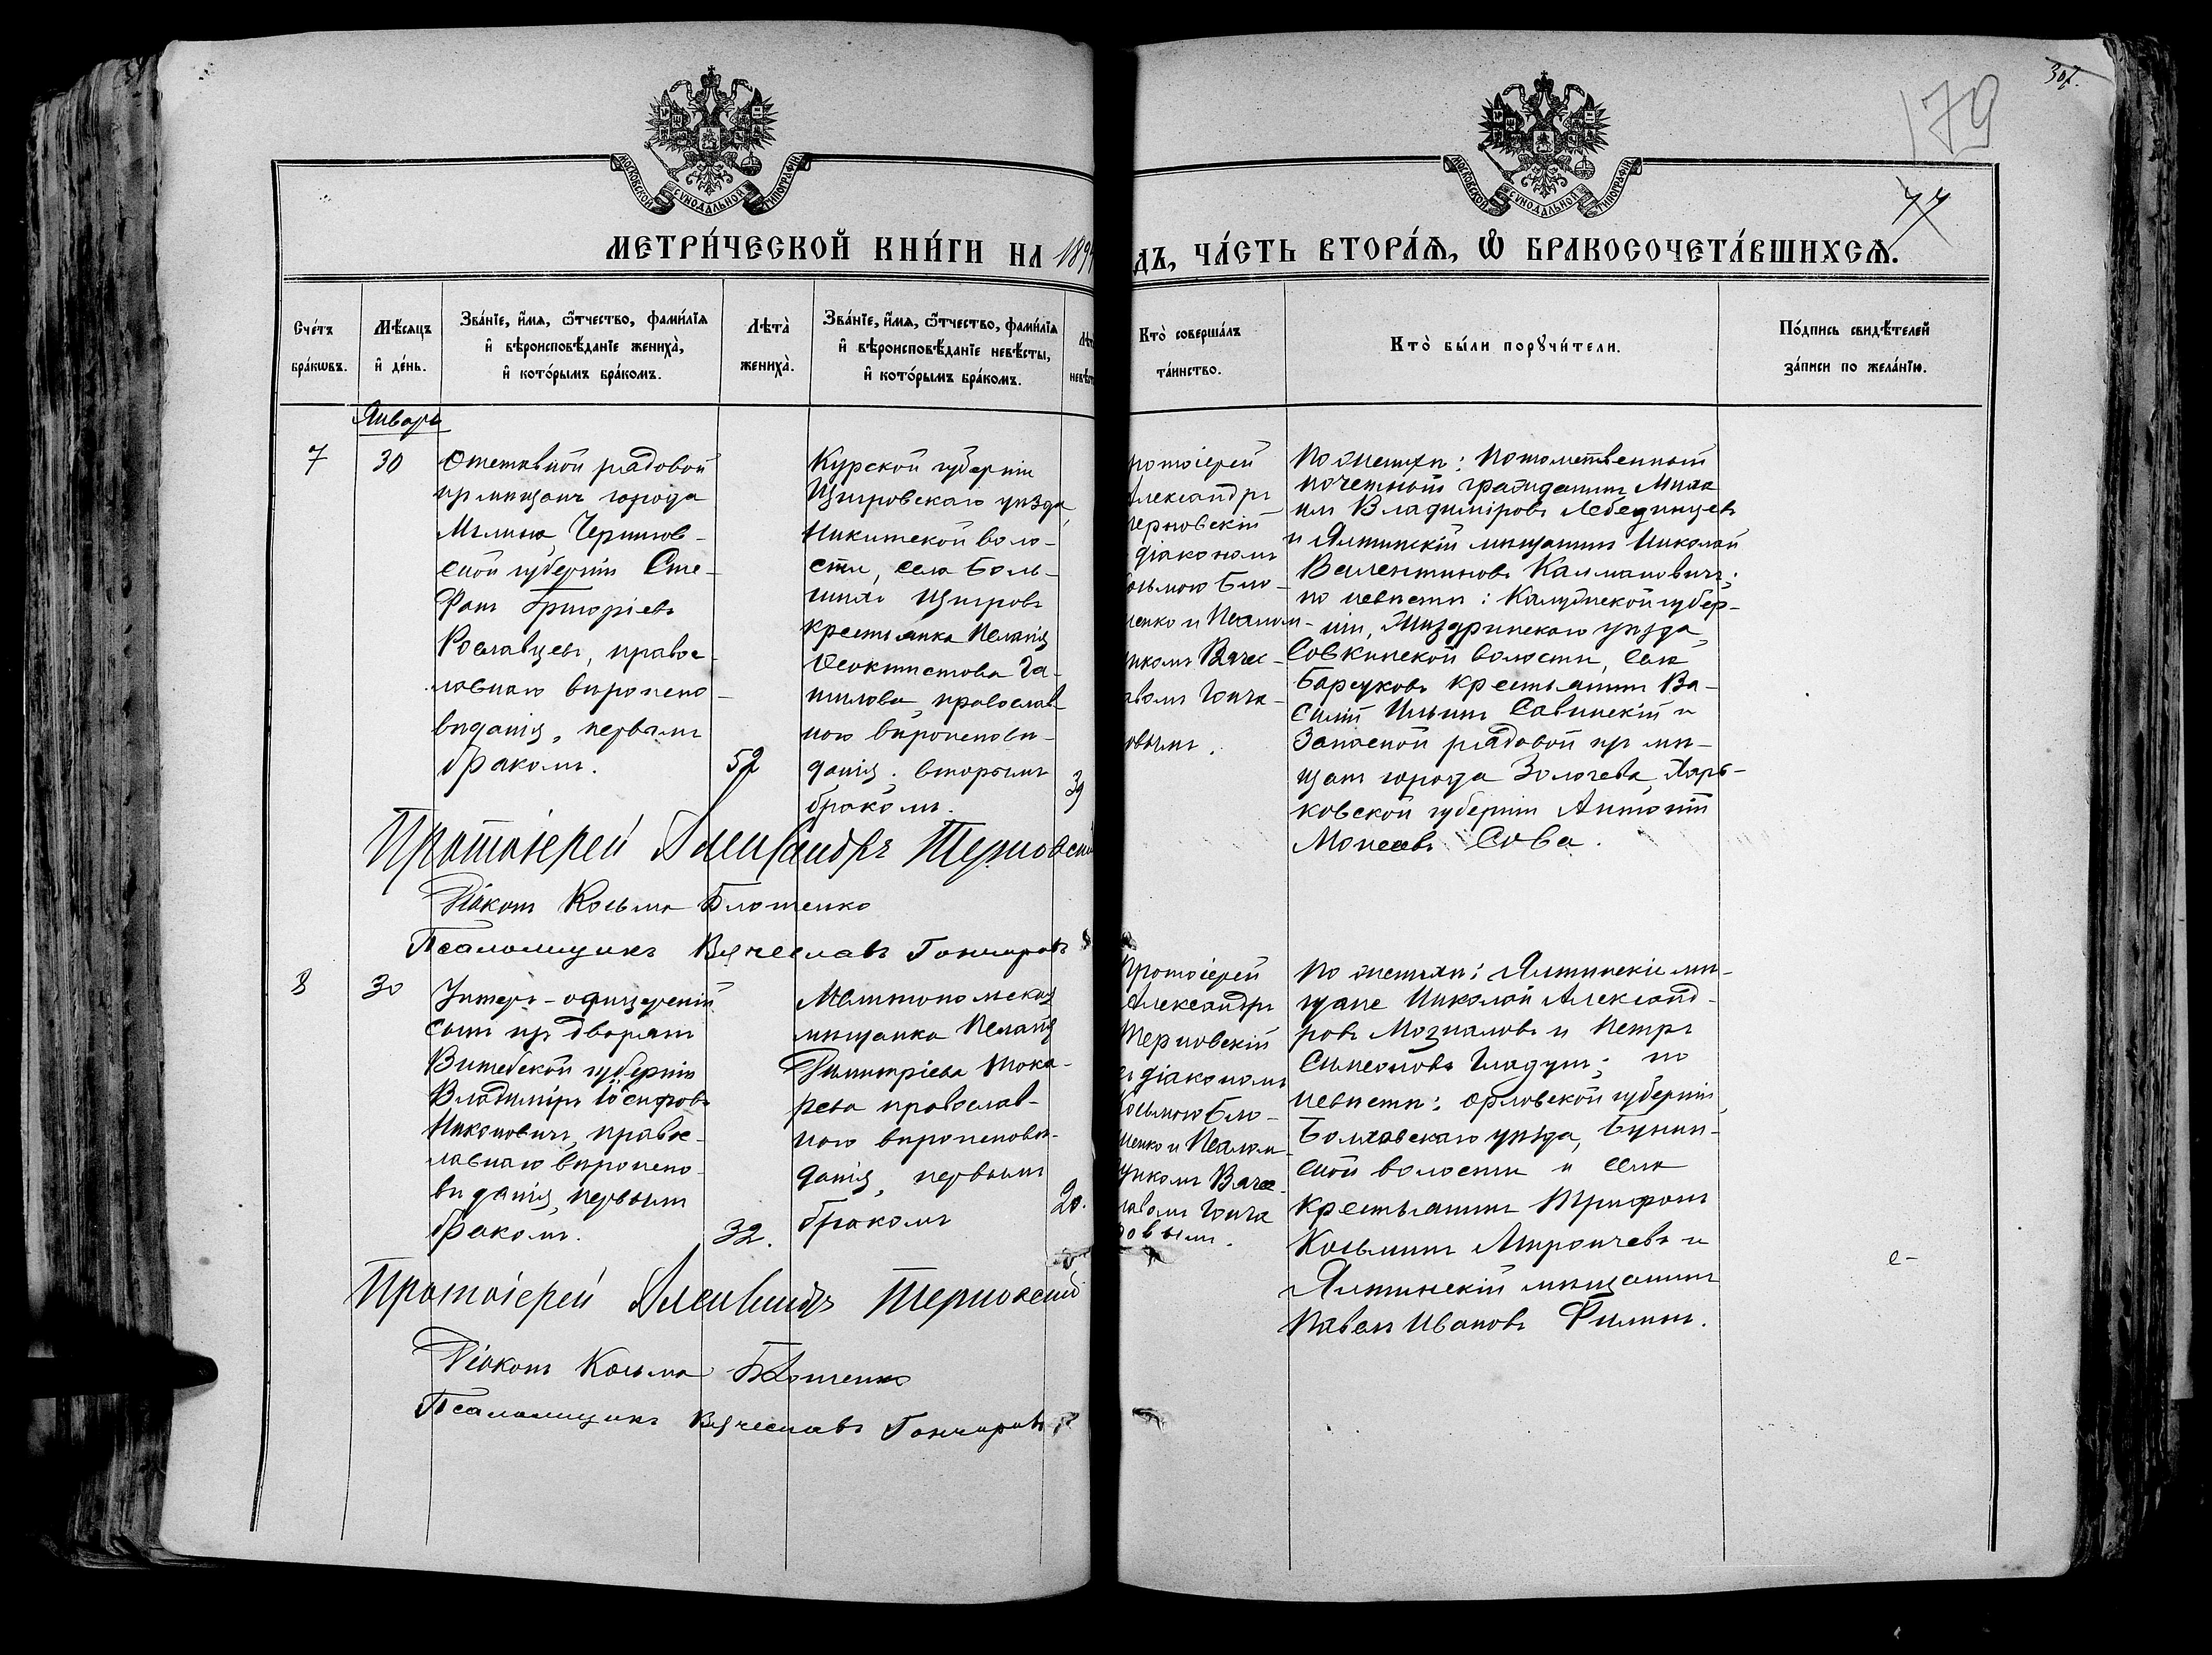 307.
179
77
МОСКОВСКОЙ СѴНОДАЛЬНОЙ ТИПОГРАФІИ
МОСКОВСКОЙ СѴНОДАЛЬНОЙ ТИПОГРАФІИ
МЕТРИ́ЧЕСКОЙ КНИ́ГИ НА 189
ДЪ, ЧА́СТЬ ВТОРА́Ѧ, Ѡ БРАКОСОЧЕТА́ВШИХСѦ.
Сче́тъ
бра́кѡвъ.
Мѣ́сяцъ
и҆ де́нь.
Зва́нїе, и҆́мѧ, ѻ҆́тчество, фами́лїѧ
и҆ вѣроисповѣ́данїе жениха̀,
и҆ кото́рымъ бра́комъ.
Лѣта̀
жениха̀.
Зва́нїе, и҆́мѧ, ѻ҆́тчество, фами́лїѧ
и҆ вѣроисповѣ́данїе невѣ́сты,
и҆ кото́рымъ бра́комъ.
Лѣт
невѣст
Кто̀ соверша́лъ
та́инство.
Кто̀ бы́ли порꙋчи́тели.
По́дпись свидѣ́телей
за́писи по жела́нїю.
Январь
7
30
Отставной рядовой
изъ мѣщанъ города
Мглина, Чернигов-
ской губерніи Сте-
фанъ Григоріевъ
Рославцевъ, правос-
лавнаго вѣроиспо-
вѣданія, первымъ
бракомъ.
52
Курской губерніи
Щигровскаго уѣзда,
Никитской воло-
сти, села Боль-
шихъ Щигровъ
крестьянка Пелагія
Ѳеоктистова
православ-
наго вѣроисповѣ-
данія. вторымъ
бракомъ.
39
ротоіерей
Александръ
Терновскій
діакономъ
Косьмою Бло-
шенко и Псалом-
щикомъ Вячес-
лавомъ Гонча-
ровымъ.
По женихѣ: Потомственный
почетный гражданинъ Миха-
илъ Владиміровъ Лебединцевъ
и Ялтинскій мѣщанинъ Николай
Валентиновъ Калмановичъ;
по невѣстѣ: Калужской губер-
ніи, Жиздринскаго уѣзда,
Совкинской волости, села
Барсуковъ крестьянинъ Ва-
силій Ильинъ Савинскій и
Запасной рядовой изъ мѣ-
щанъ города Золочева, Харь-
ковской губерніи Антоній
Моисеевъ Сова.
Протоіерей Александръ Терновскій
Діаконъ Косьма Блошенко
Псаломщикъ Вячеславъ Гончаровъ
8
30
Унтеръ-офицерскій
сынъ изъ дворянъ
Витебской губерніи
Владиміръ Іосифовъ
Никоновичъ, правос-
лавнаго вѣроиспо-
вѣданія, первымъ
бракомъ.
32.
Мелитопольская
мѣщанка Пелагія
Димитріева Тока-
рева православ-
наго вѣроисповѣ-
данія, первымъ
бракомъ
20.
Протоіерей
Александръ
Терновскій
съ діакономъ
Косьмою Бло-
шенко и Псалом-
щикомъ Вячес-
лавомъ Гонча
ровымъ.
По женихѣ: Ялтинскіе мѣ-
щане Николай Александ-
ровъ Мозгалевъ и Петръ
Симеоновъ Гладунъ; по
невѣстѣ: Орловской губерніи,
Болховскаго уѣзда, Бунин-
ской волости и села
крестьянинъ Трифонъ
Косьминъ Атроничевъ и
Ялтинскій мѣщанинъ
Павелъ Ивановъ Филинъ.
Протоіерей Александръ Терновскій
Діаконъ Косьма Блошенко
Псаломщикъ Вячеславъ Гончаровъ